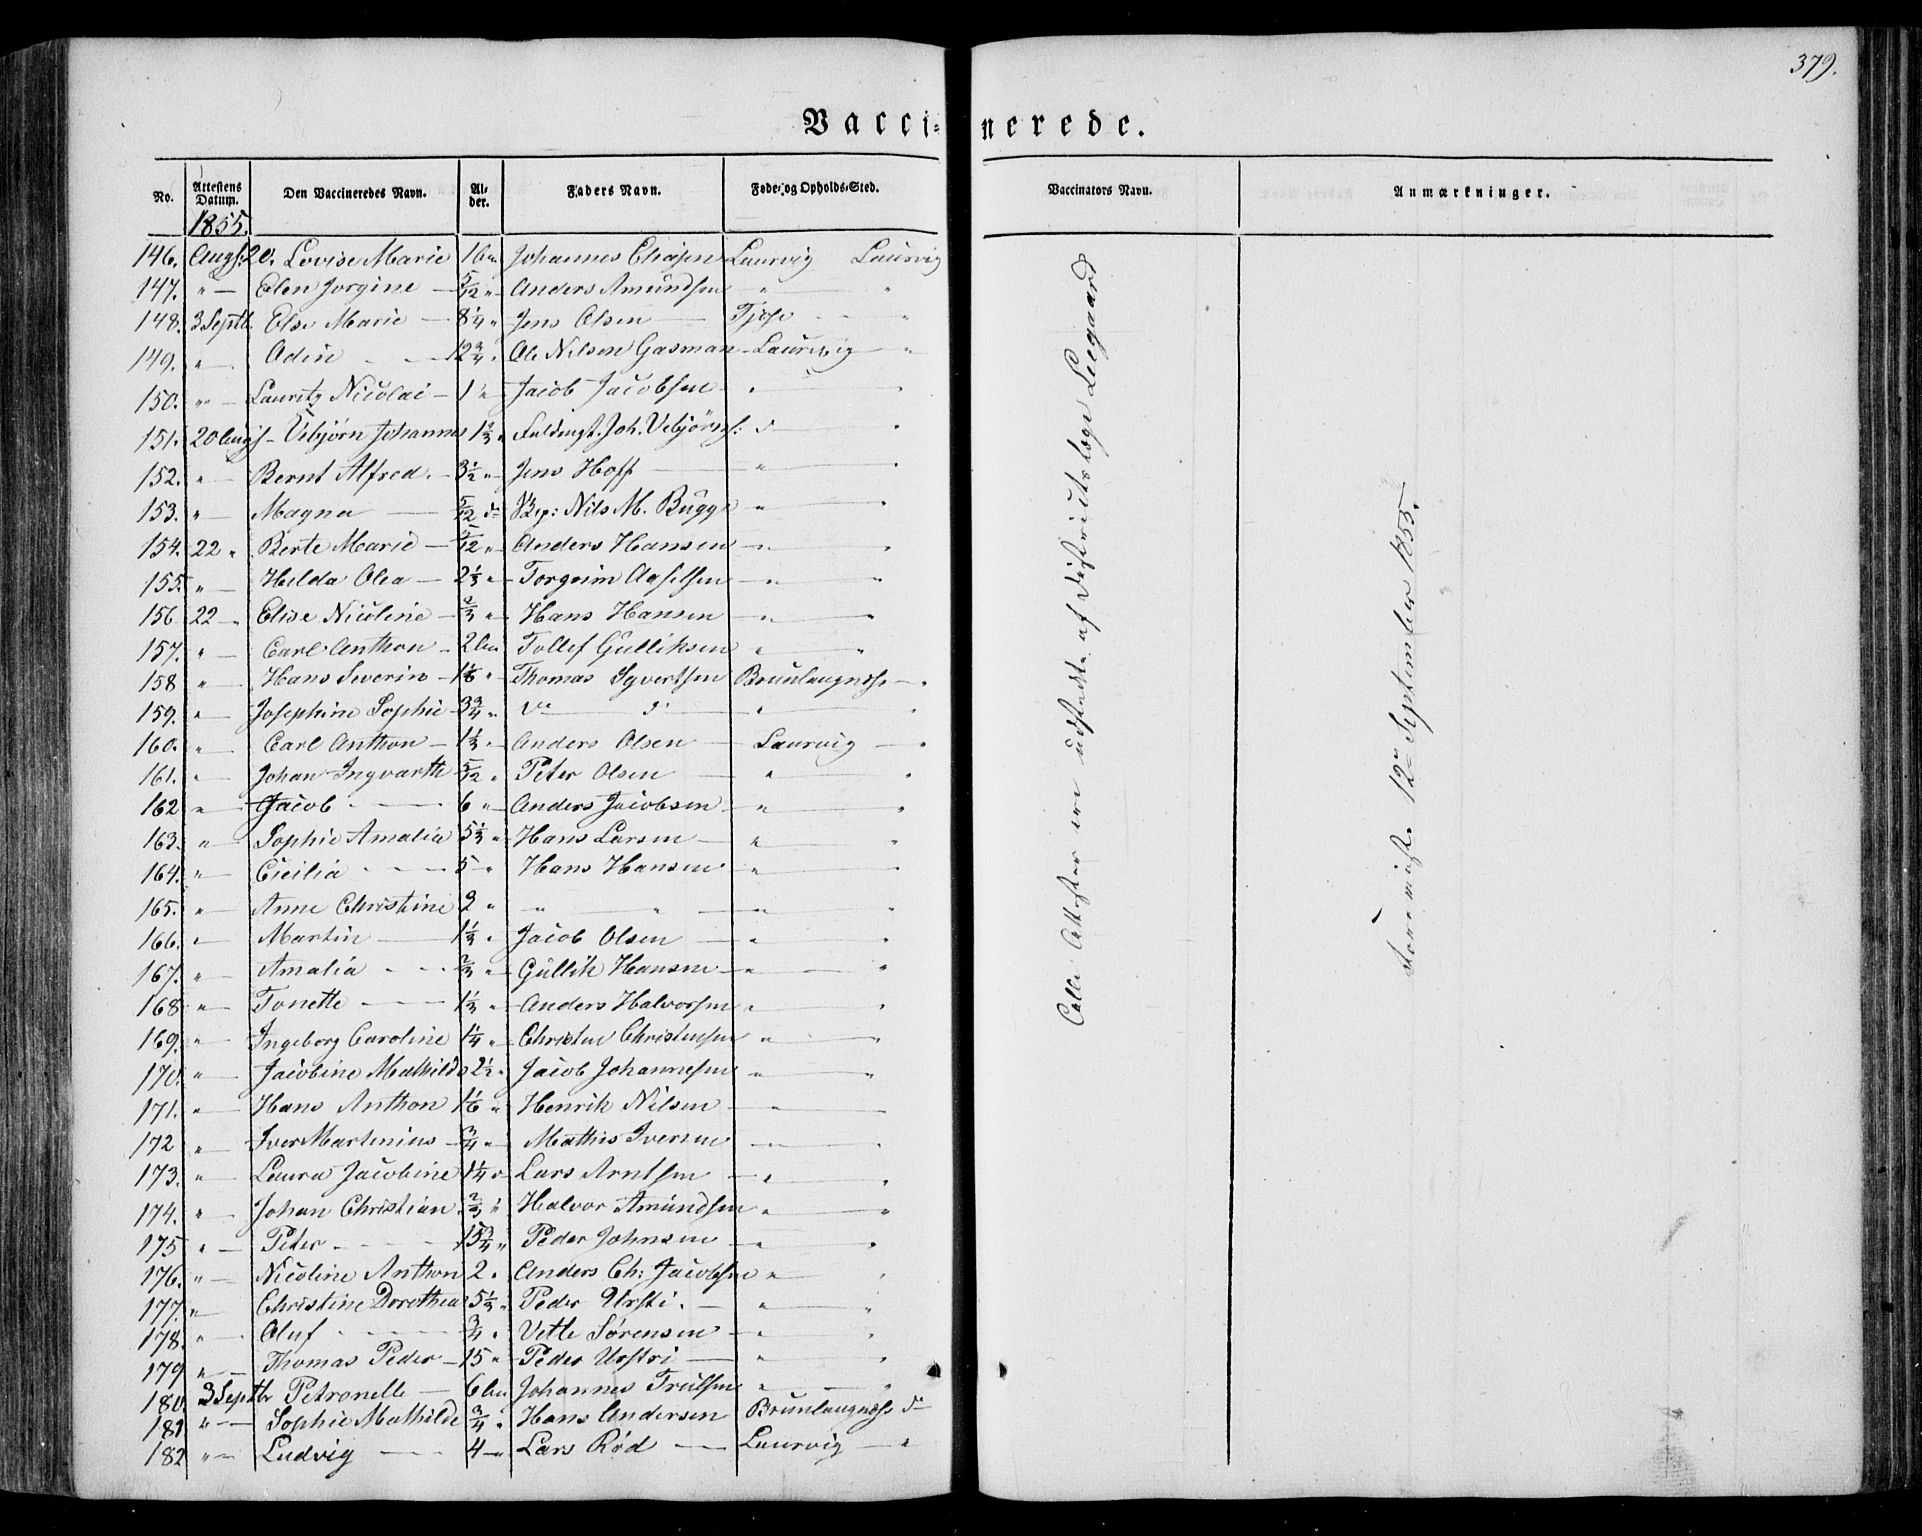 379.
Vacci- nerede.
No. Attestens Datum. Den Vaccineredes Navn. Al- der. Faders Navn. Føde- og Opholds-Sted. Vaccinators Navn. Anmærkninger.
1855.
146. Augs: 20. Lovise Marie 16 Johannes Laurvig Laurvig
147. " — Elen Jorgine — 5/12 " Anders Amundsen " — "
148. 3 Septb. Else Marie — 8 1/4 " Jens Olsen — Tjose — "
149. " — Adin — 12 3/4 " Ole Nilsen Gasman — Laurvig — "
150. " — Lauritz Nicolai — 1 " Jacob Jacobsen " — "
151. 20 Augs — Vebjørn Johannes 1 2/3 " Fuldmgt. Joh. Vebjörns: d — "
152. " — Bernt Alfred — 3 1/2 " — Jens Hoff — " — "
153. " — Magna — 5/12 d Bep: Nils M. Bugge " — "
154. 22 " Berte Marie — 5/12 " — Anders Hansen — " — "
155. " — Helda Olea — 2 1/3 " — Torgeim Axselsen " — "
156 22 — Elise Nicoline — 2/3 " — Hans Hansen — " — "
157. " — Carl Anthon — 2 Tollef Gulliksen " — "
158 " — Hans Severin — 1 1/6 " Thomas Syvertsen Brunlaugnæss — "
159. " — Josephine Sophie — 3 3/4 " do d " — "
160. " — Carl Anthon — 1 1/3 " Anders Olsen — Laurvig — "
161. " — Johan Ingvarth 5/12 " Peter Olsen — " — "
162 " — Jacob — 6 " Anders Jacobsen — " — "
163. " — Sophie Amalia 5 1/3 " Hans Larsen — " — "
164. " — Cicilia — 5 " Hans Hansen — " — "
165. " — Anne Christine 2 " " " — " — "
166. " — Martin — 1 1/3 " Jacob Olsen — " — "
167. " — Amalia — 2/3 " Gullik Hansen — " — "
168 " — Tonette — 1 1/3 " Anders Halvorsen " — "
169. " — Ingeborg Caroline 1 1/4 " Christen Christensen " — "
170. " — Jacobine Mathilde 2 1/2 " Jacob Johannesen " — "
171. " — Hans Anthon 1 1/6 " Henrik Nilsen — " — "
172 " — Iver Martinius — 3/4 " Mathis Iversen — " — "
173. " — Laura Jacobine 1 1/4 " Lars Arntsen — " — "
174. " — Johan Christian 2/3 " Halvor Amundsen " — "
175 " — Peter — 15 3/4 " Peder Johnsen — " — "
176. " — Nicoline Anthon 2 " Anders Ch: Jacobsen " — "
177. " — Christine Dorothea 5 1/3 " Peder Ursti. — " — "
178. " — Oluf — 3/4 " Vetle Sørensen — " — "
179 " — Thomas Peder — 15 " Peder Urstri — " — "
180 3 Septbr Petronelle — 6 Johannes Trulsen " — "
181 " — Sophie Mathilde 3/4 " Hans Andersen Brunlaugnæss do
182 " — Ludvig — 4 — Lars Rød — Laurvig — "
Alle Attester ere udstedte af Districtslæge Leegaard
Foreviist 12te September 1855.